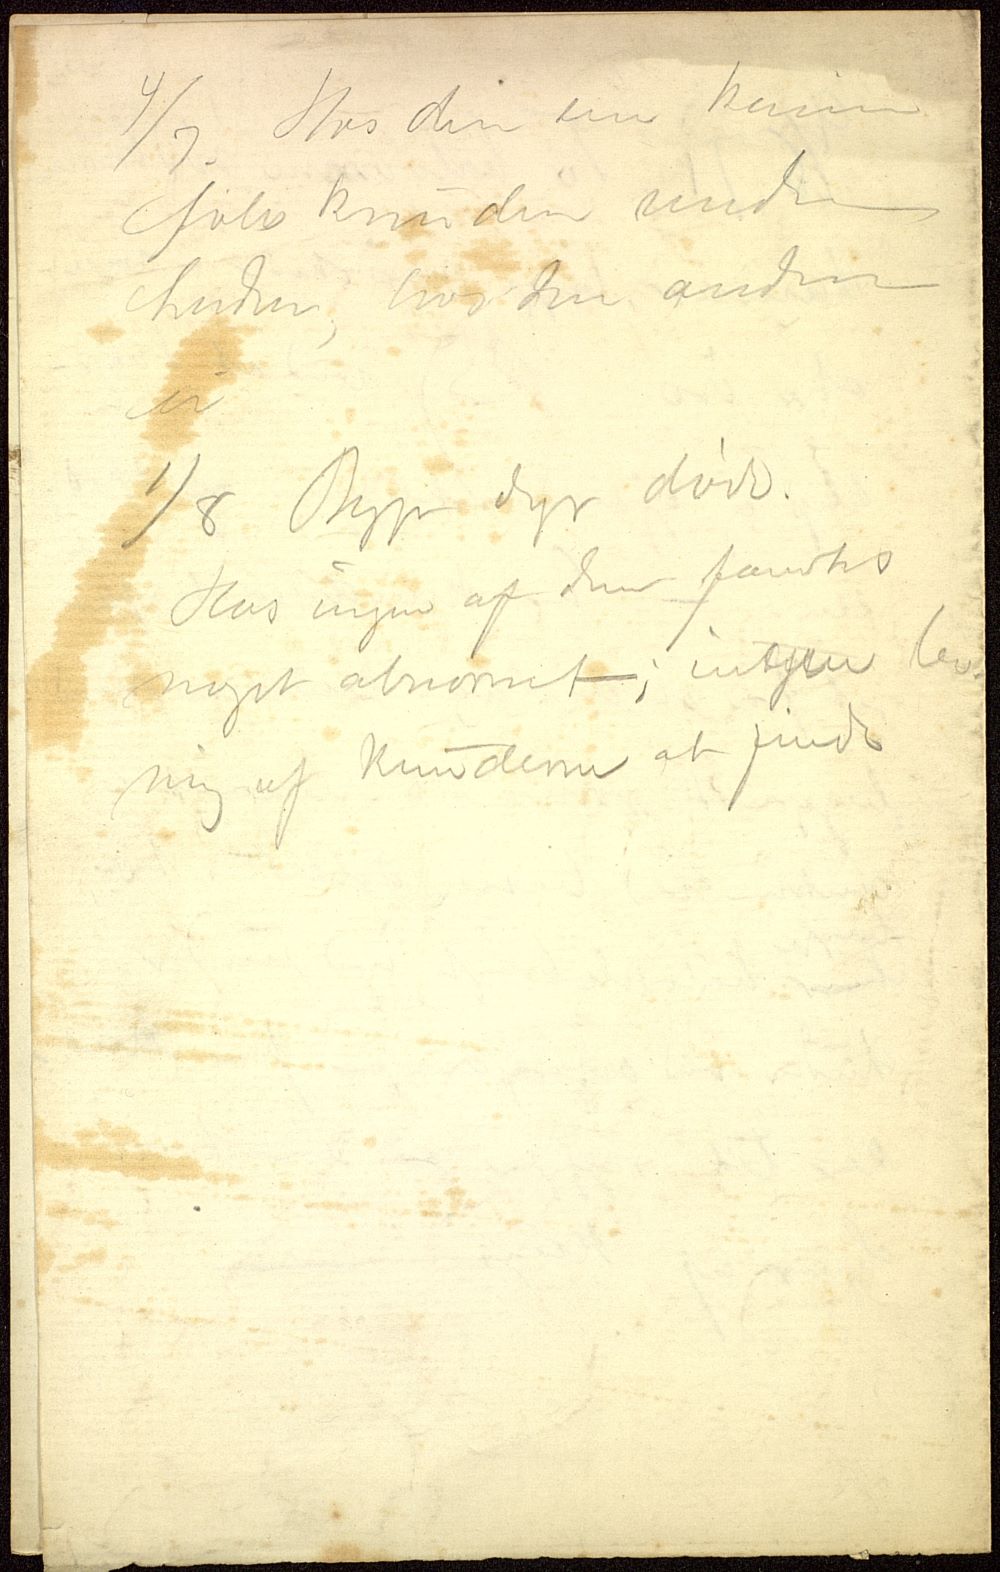 4/7. Hos den ene kanin
føles knuden under
huden, hos den anden
ei
1/8 Begge dyr døde.
Hos ingen af dem fandtes
noget abnormt; intgen lev-
ning af knuderne at finde